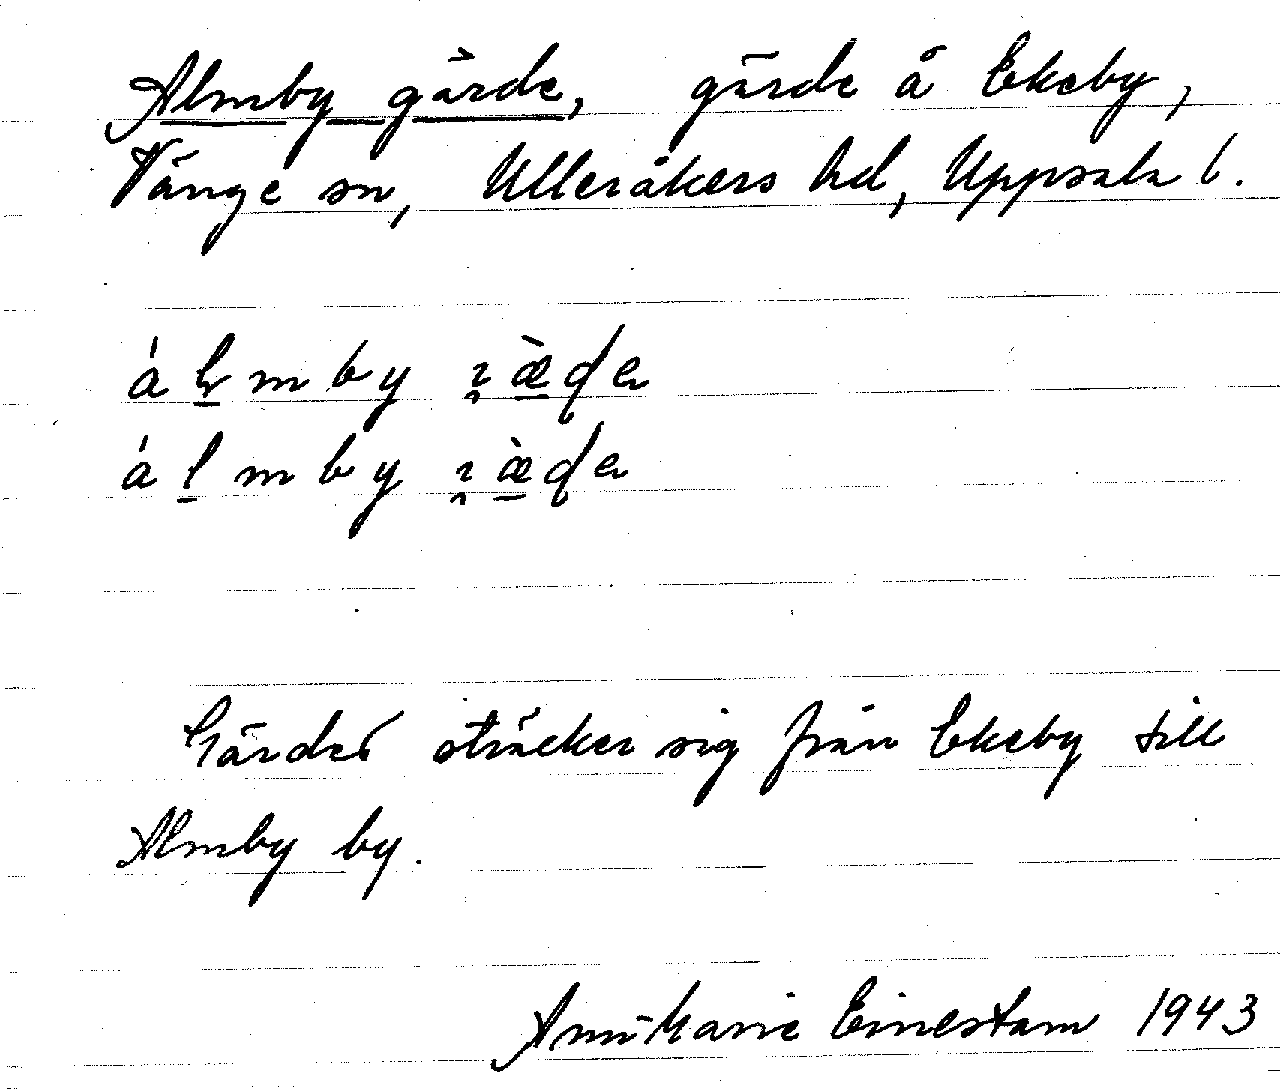 Almby gärde, gärde å Ekeby,
Vänge sn, Ulleråkers hd, Uppsala l.
Gärdet sträcker sig från Ekeby till
Almby by.
AnnMarie Einestam 1943